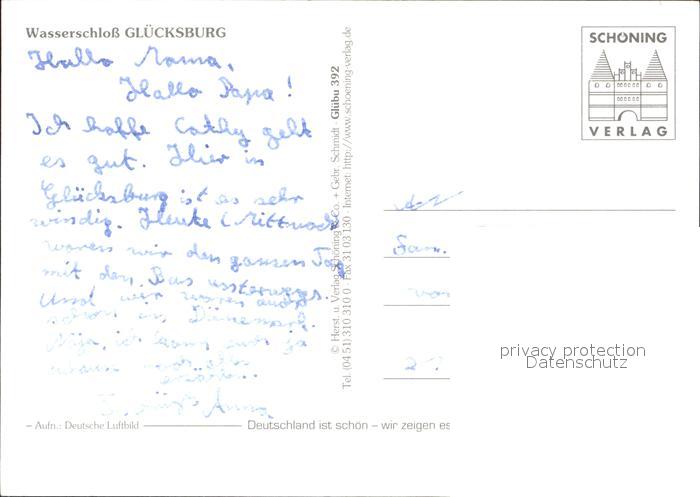 Wasserschloß GLÜCKSBURG
Hallo Mama,
Hallo Papa!
Ich hoffe Cathy geht
es gut. Hier in
Glücksburg ist es sehr
windig. Heute (Mittwoch
waren wir den ganzen Tag
mit dem Bus unterwegs.
Und wir waren auch
schon in Dänemark.
Naja, ich kann euch ja
zuhause noch alles
erzählen...
Anna
– Aufn.: Deutsche Luftbild
Deutschland ist schön – wir zeigen es
© Herst. u. Verlag Schöning & Co. + Gebr. Schmidt · Glübu 392
Tel. (04 51) 310 310 0 · Fax 31 03 130 · Internet: http://www.schoening-verlag.de
SCHÖNING
VERLAG
An
Fam.
von
privacy protection
Datenschutz